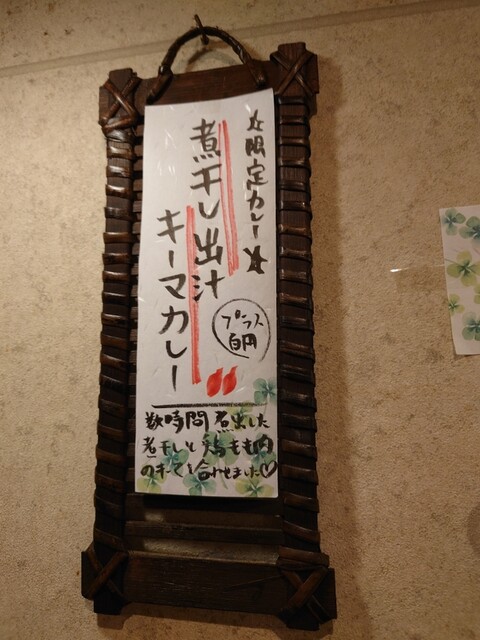 ☆限定カレー★
煮干し出汁
キーマカレー
プラス
百円
数時間煮出した
煮干しと鶏もも肉
のキーマを合わせました♡